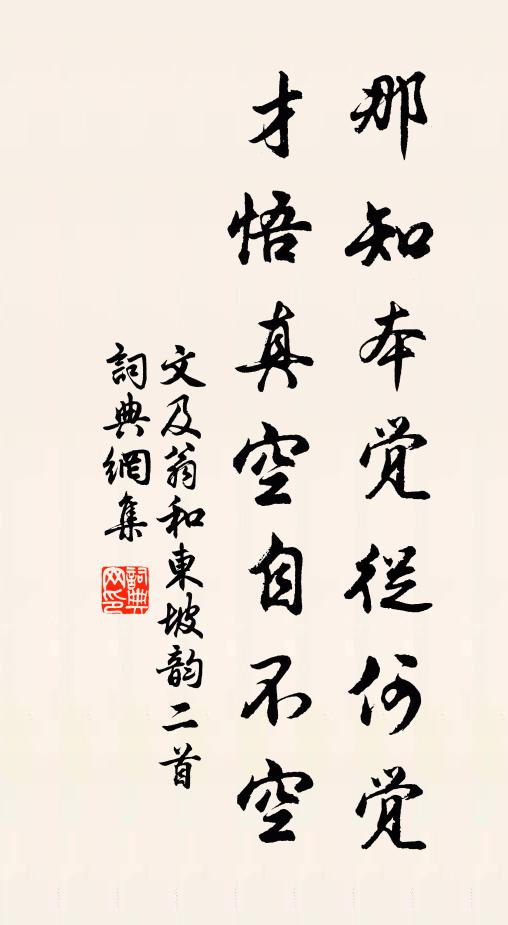 那知本覺從何覺
才悟真空自不空
文及翁和東坡韵二首
詞典網集
詞典网印